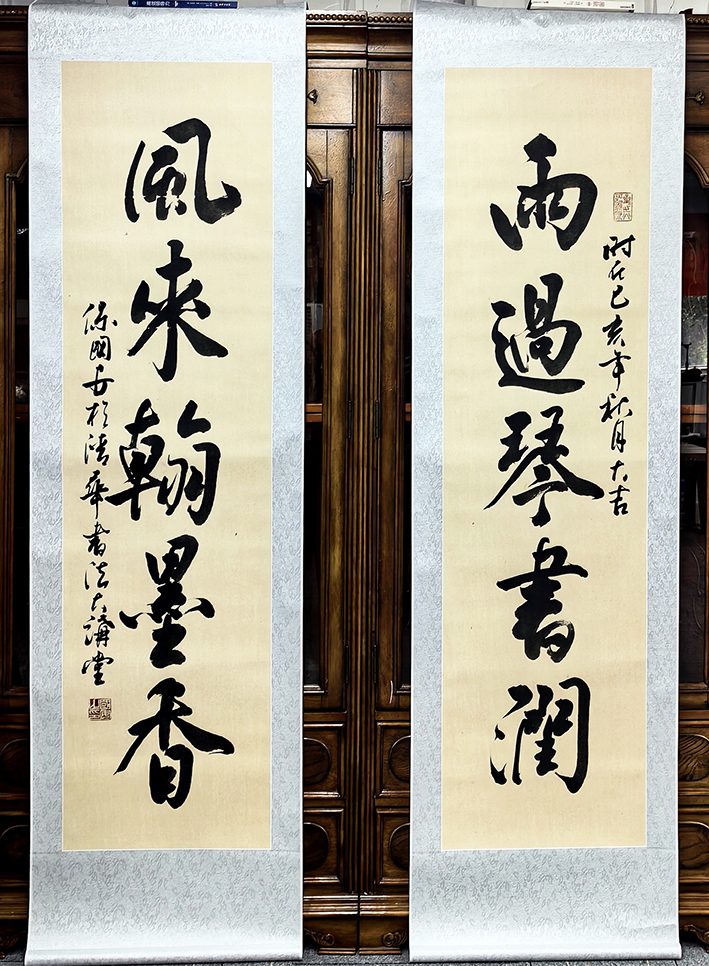 雨過琴書潤
時在己亥年秋月大吉
風來翰墨香
保國書於清華書法大講堂